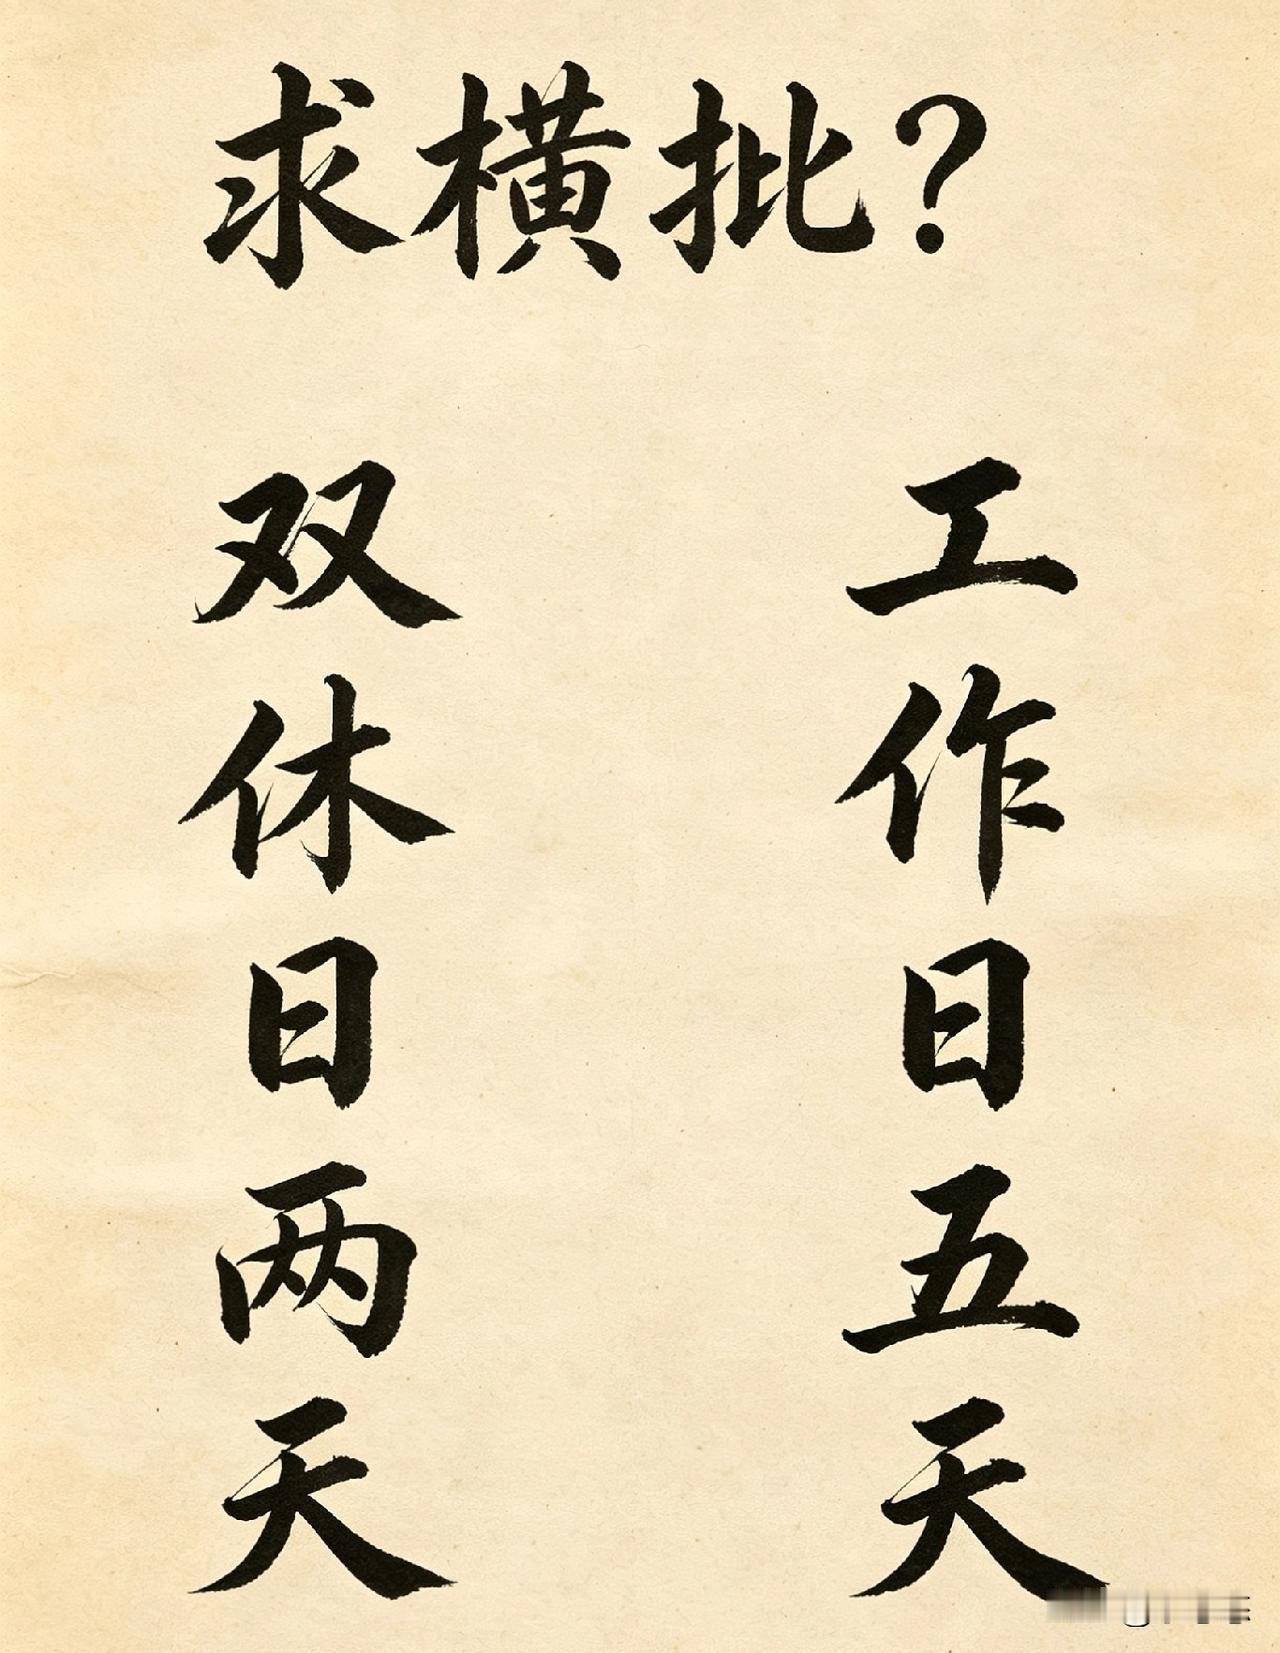 求横批？
工作日五天
双休日两天